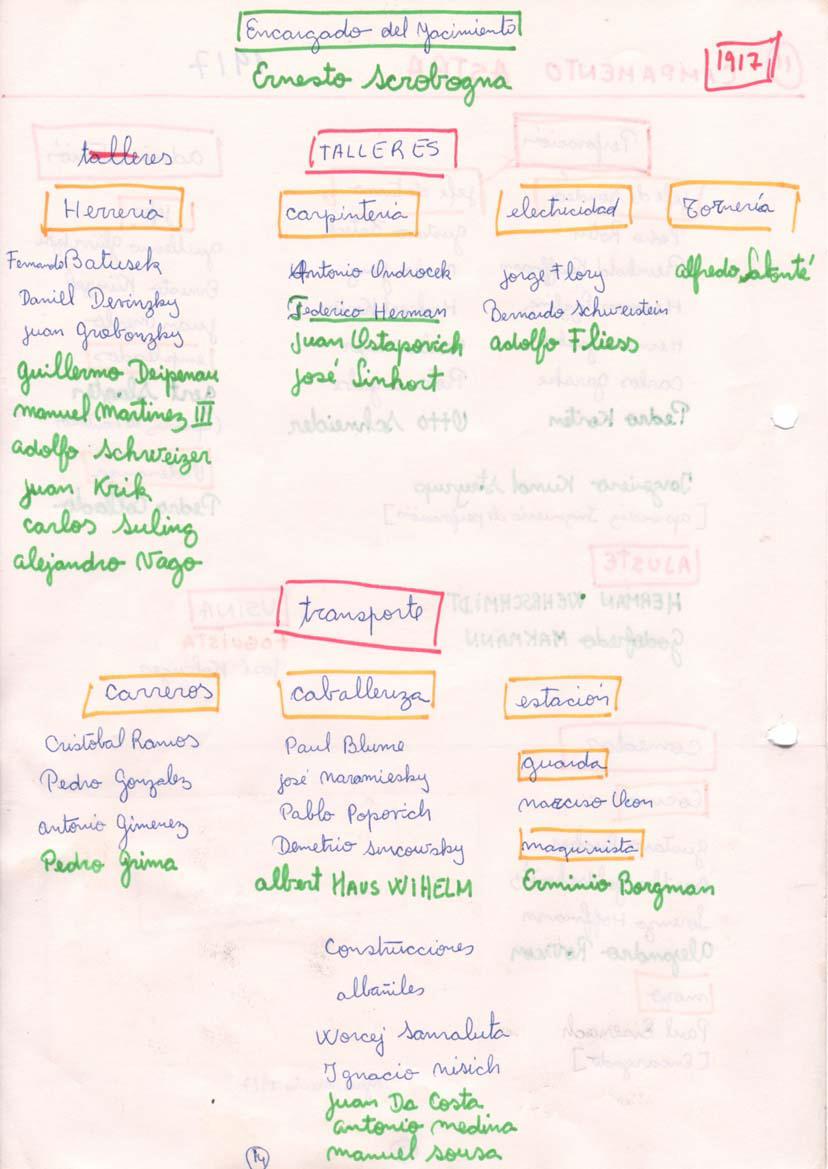 Encargado del Yacimiento
Ernesto Scrobogna
1917
talleres
TALLERES
Herreria
carpinteria
electricidad
Tornería
Fernando Batusek
Daniel Devinzky
Juan Grobonzky
guillermo Deipenau
manuel Martinez III
adolfo Schweizer
juan Krik
carlos Suling
alejandro Vago
Antonio Undrocek
Federico Herman
Juan Ustapovich
josé Sinhort
Jorge Flory
Bernardo Schweistein
adolfo Fliess
alfredo Latonté
transporte
carreros
caballeriza
estación
Cristobal Ramos
Pedro Gonzalez
antonio Gimenez
Pedro Grima
Paul Blume
josé Naramiesky
Pablo Popovich
Demetrio Surcowsky
albert HAUS WIHELM
guarda
narciso Ucon
maquinista
Erminio Borgman
Construcciones
albañiles
Worcej Samaluta
Ignacio Nisich
Juan Da Costa
antonio medina
manuel sousa
14